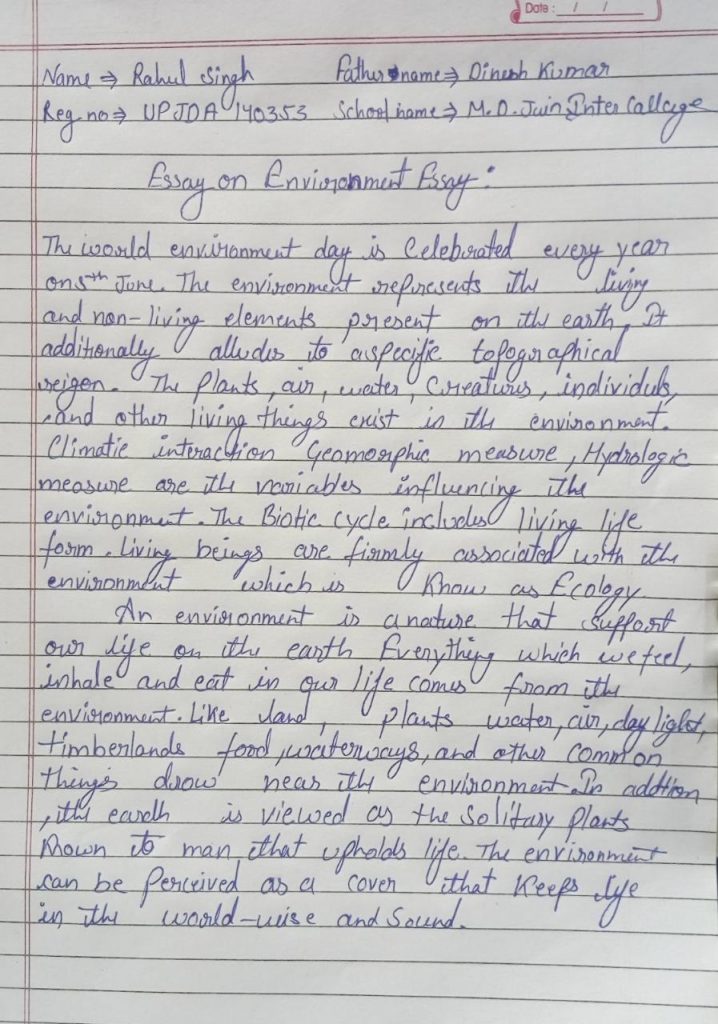 Date : / /
Name ⇒ Rahul Singh Father name ⇒ Dinesh Kumar
Reg no ⇒ UPJDA 140353 School name ⇒ M.D. Juin Inter Callege
Essay on Environment Essay :
The world environment day is Celebrated every year
on 5th June. The environment represents the living
and non-living elements present on the earth, It
additionally alludes to aspecific topographical
reigen. The Plants, air, water, Creatures, individuls,
and other living things exist in the environment.
Climatic interaction Geomorphic measure, Hydrologic
measure are the variables influencing the
environment. The Biotic cycle includes living life
form. Living beings are firmly associated with the
environment which is Know as Ecology.
An environment is a nature that support
our life on the earth Everything which we feel,
inhale and eat in our life comes from the
environment. Like land, plants water, air, day light,
timberlands food, waterways, and other common
things drow near the environment. In addtion
, the eardh is viewed as the Solitary Plants
Known to man, that upholds life. The environment
can be Perceived as a cover that Keeps lye
in the world-wise and Sound.